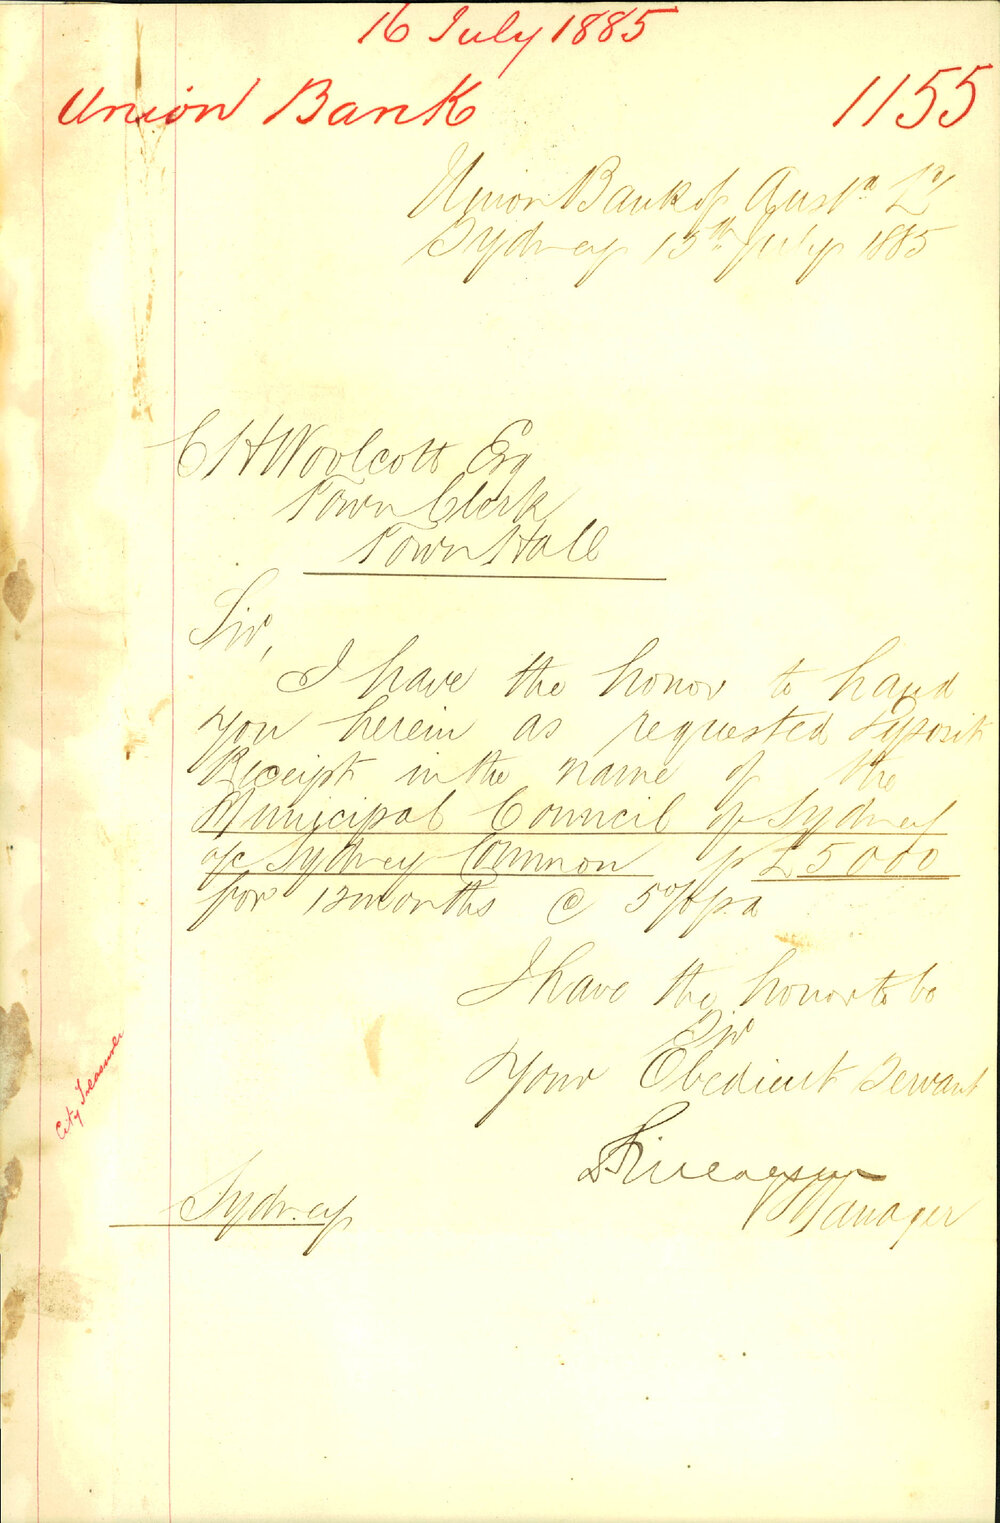 16 July 1885
Union Bank 1155
Union Bank of Aust.a Ld
Sydney 15th July 1885
C H Woolcott Esq
Town Clerk
Town Hall
Sir,
I have the honor to hand
you herein as requested Deposit
Receipt in the name of the
Municipal Council of Sydney
a/c Sydney Common for £5000
for 12 months @ 5% pa
I have the honor to be
Sir
Your Obedient Servant
Manager
City Treasurer
Sydney